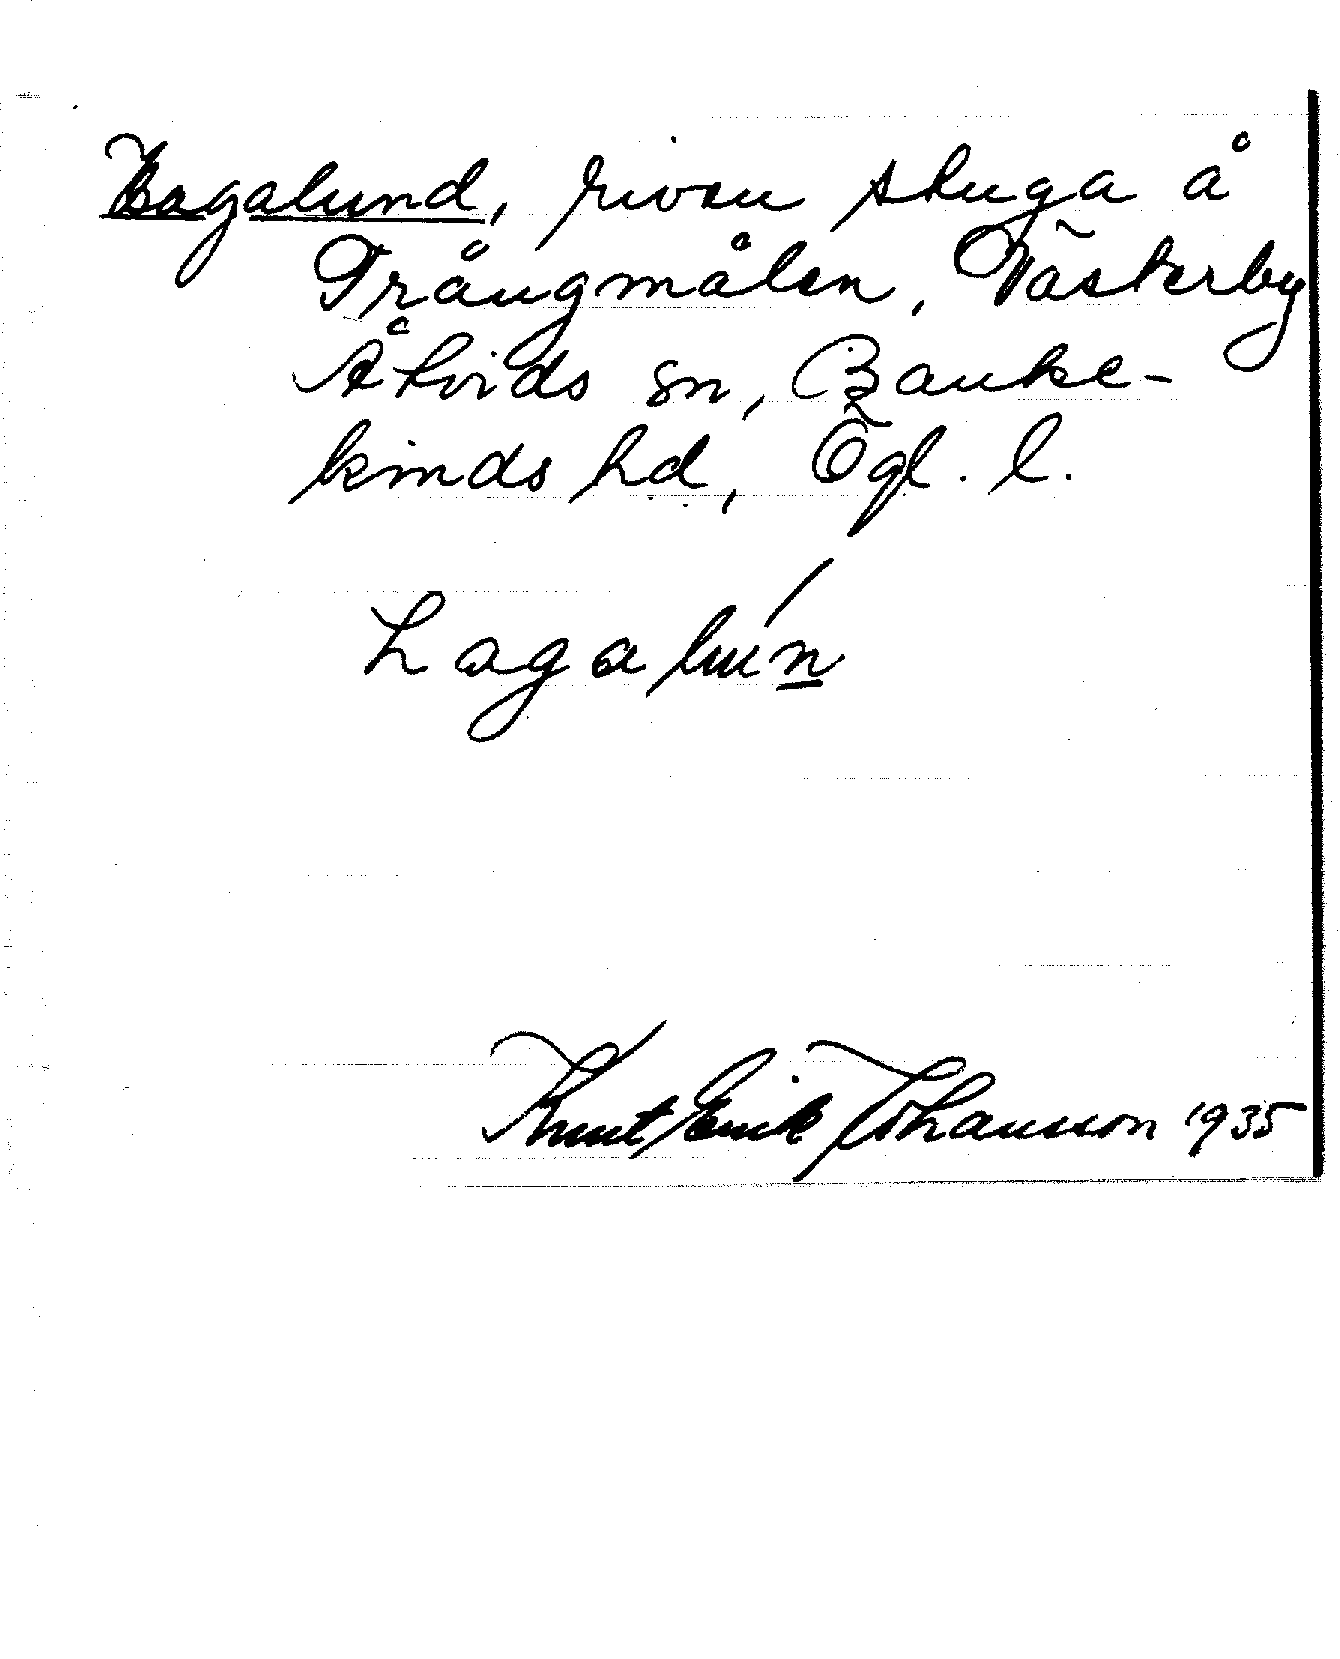 Hagalund, riven stuga å
Trångmålen, Västerby
Åtvids sn, Banke-
kinds hd, Ögl. l.
hagalún
Knut Erik Johansson 1935